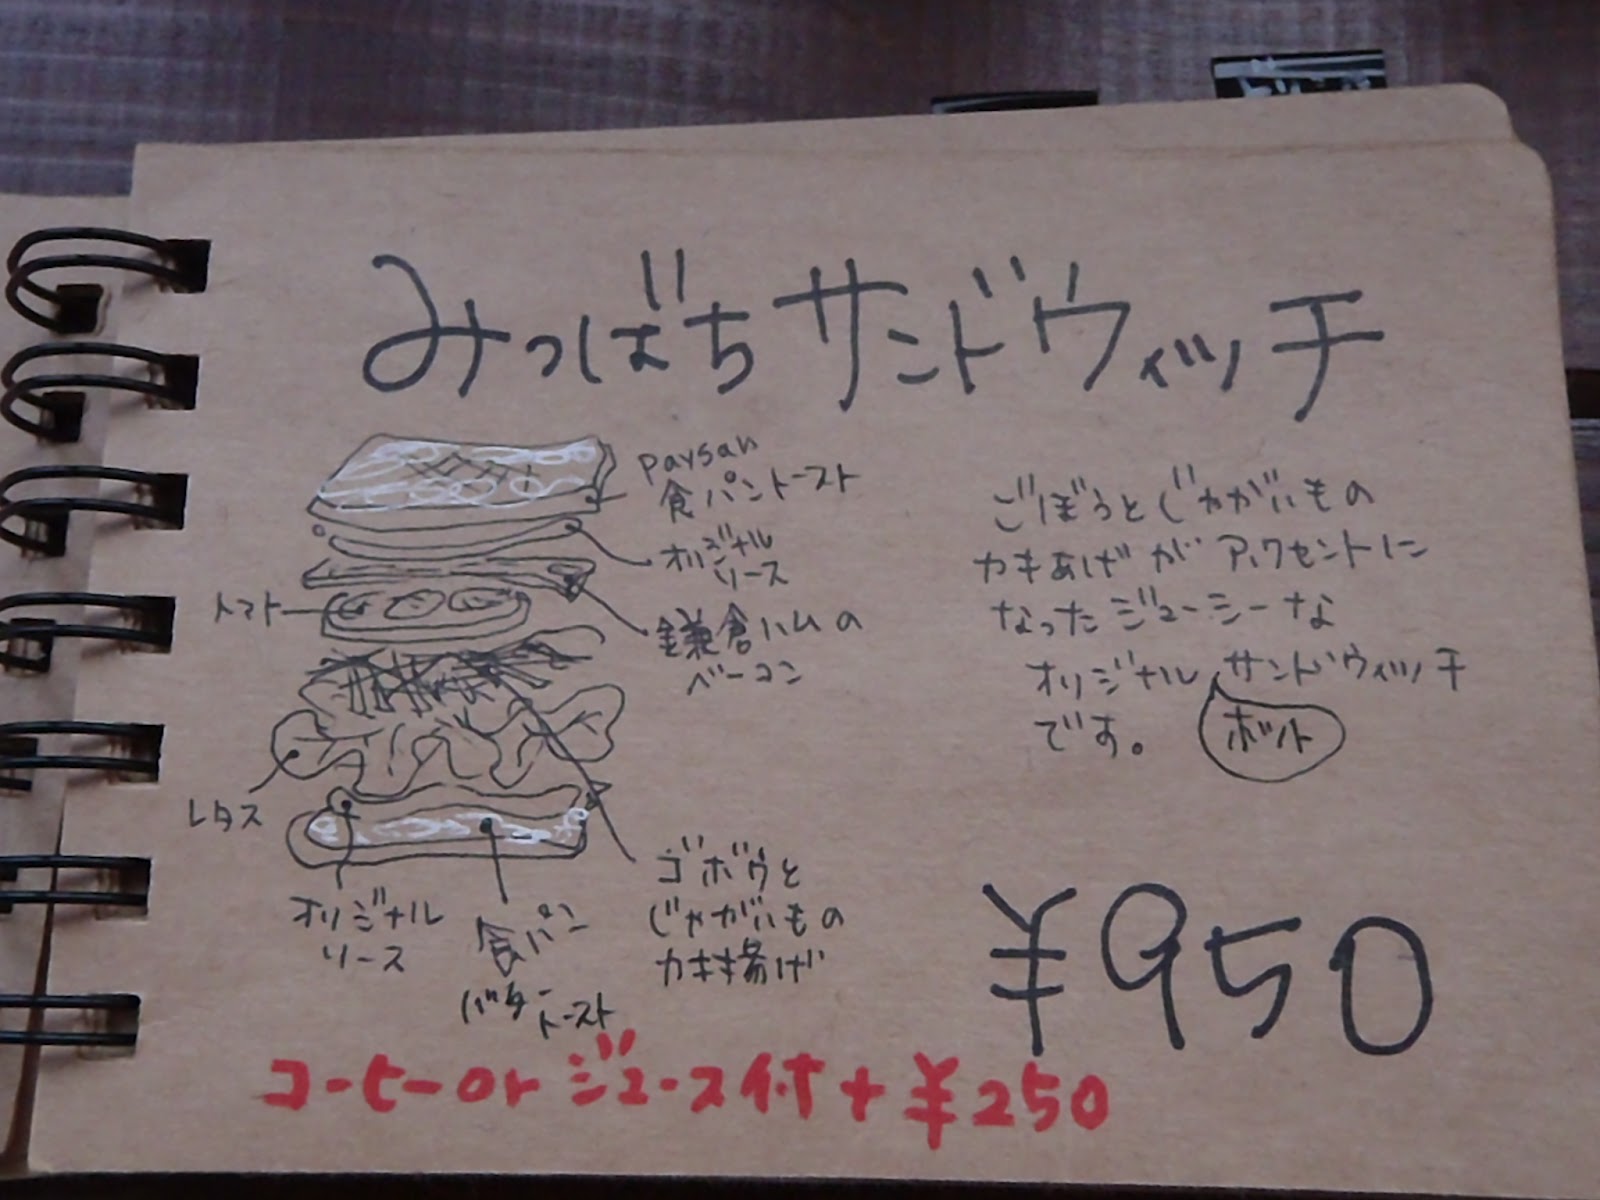 みつばちサンドウィッチ
paysan
食パントースト
オリジナル
ソース
鎌倉ハムの
ベーコン
トマト
レタス
オリジナル
ソース
食パン
バター
トースト
ゴボウと
じゃがいもの
カキ揚げ
ごぼうとじゃがいもの
カキあげがアクセントに
なったジューシーな
オリジナルサンドウィッチ
です。
ホット
¥950
コーヒーorジュース付+¥250